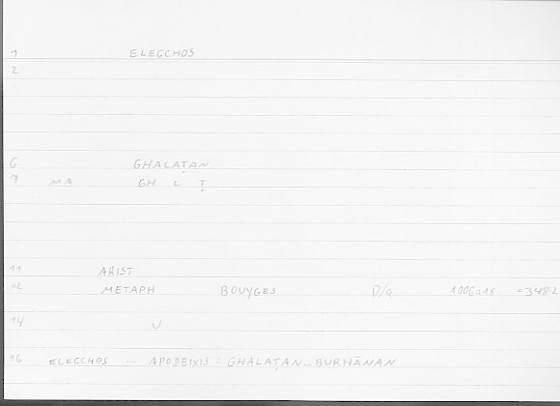 1 ELEGCHOS
2
6 GHALAṬAN
7 MA GH L Ṭ
11 ARIST
12 METAPH BOUYGES D/a 1006a18 =348.2
14 ٧
16 ELEGCHOS — APODEIXIS = GHALAṬAN — BURHĀNAN